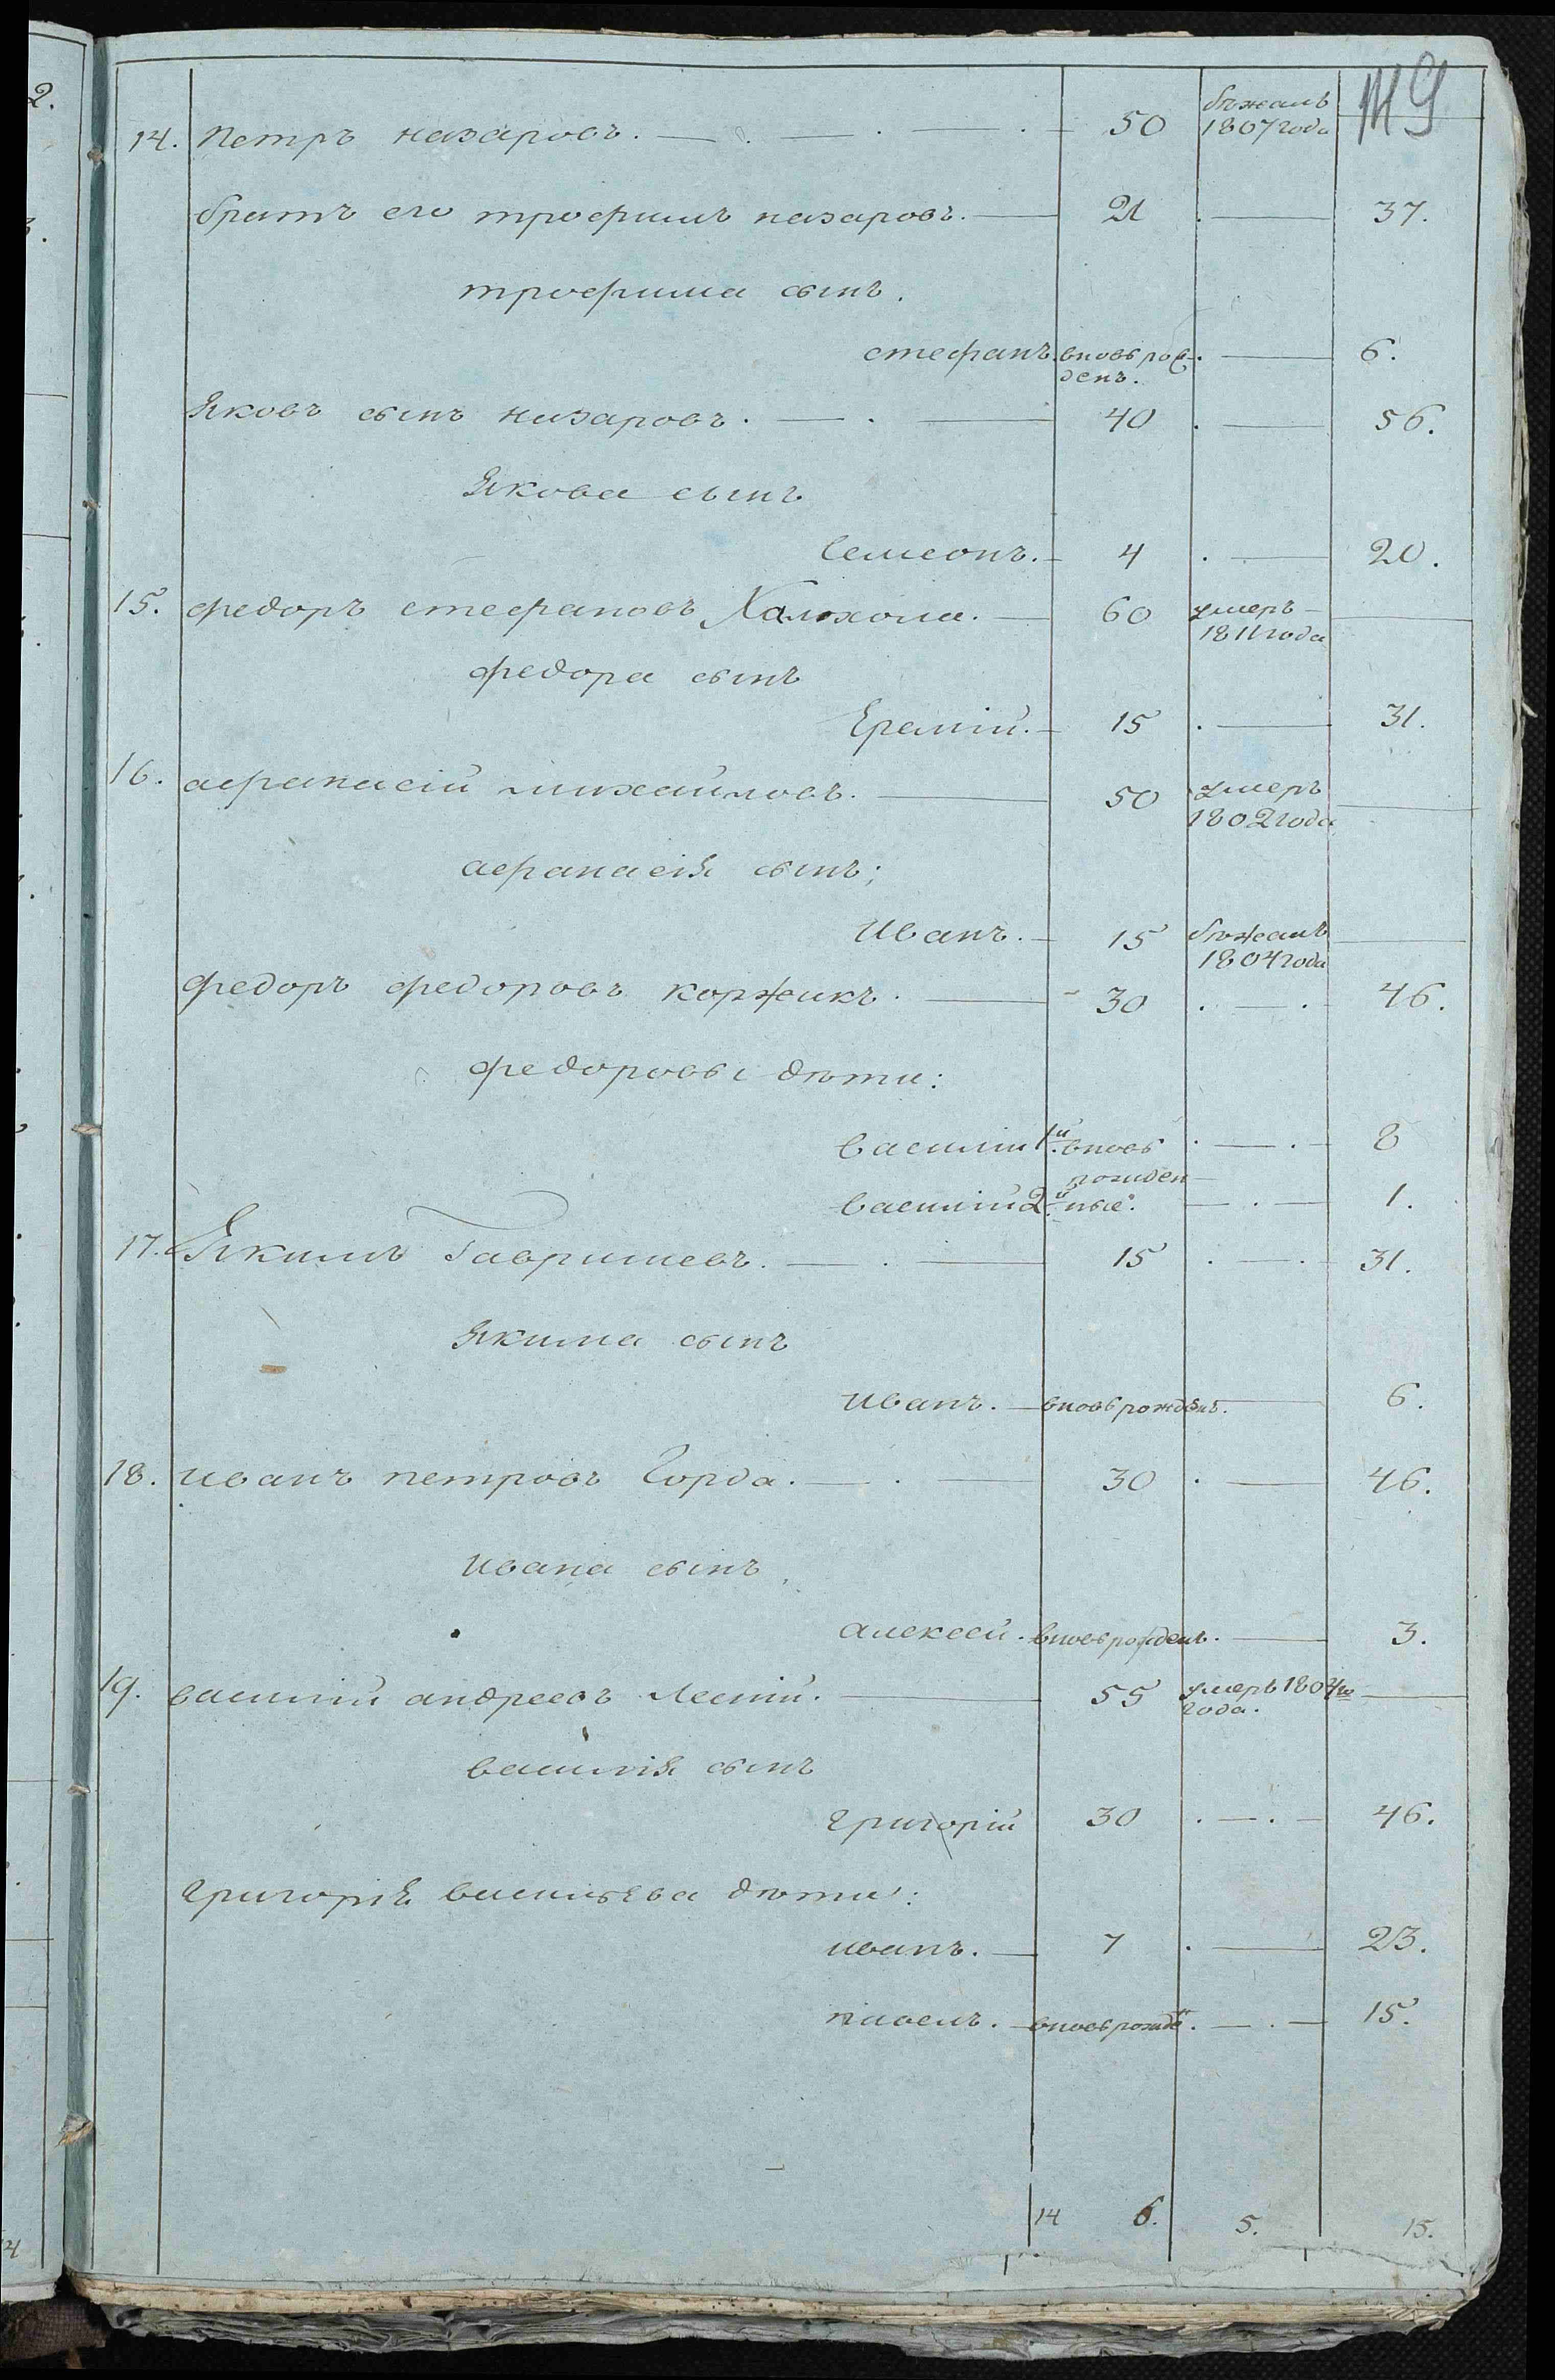 2.
14. Петръ назаровъ. 50 бѣжалъ 1807 года
братъ его трофимъ назаровъ. 21 37.
трофима сынъ.
стефанъ. вновь рож-
денъ. 6.
Яковъ сынъ назаровъ. 40 56.
Якова сынъ
Семеонъ. 4 20.
15. федоръ стефановъ 60 умеръ
1811 года
федора сынъ
Еремій. 15 31.
16. афанасій михайловъ. 50 умеръ
1802 года
афанасія сынъ;
Иванъ. 15 бѣжалъ
1804 года
федоръ федоровъ коржикъ. 30 46.
федоровы дѣти:
василій 1й вновь 8
рожден
василій 2й ные. 1.
17. Якимъ Гавришевъ. 15 31.
Якима сынъ
Иванъ. вновь рожденъ. 6.
18. иванъ петровъ Горда. 30 46.
Ивана сынъ
алексей. вновь рожденъ. 3.
19. василій андреевъ Лесній. 55 умеръ 1804го
года.
василія сынъ
григорій 30 46.
григорія васильева дѣти:
иванъ. 7 23.
павелъ. вновь рожде. 15.
14 6. 5. 15.